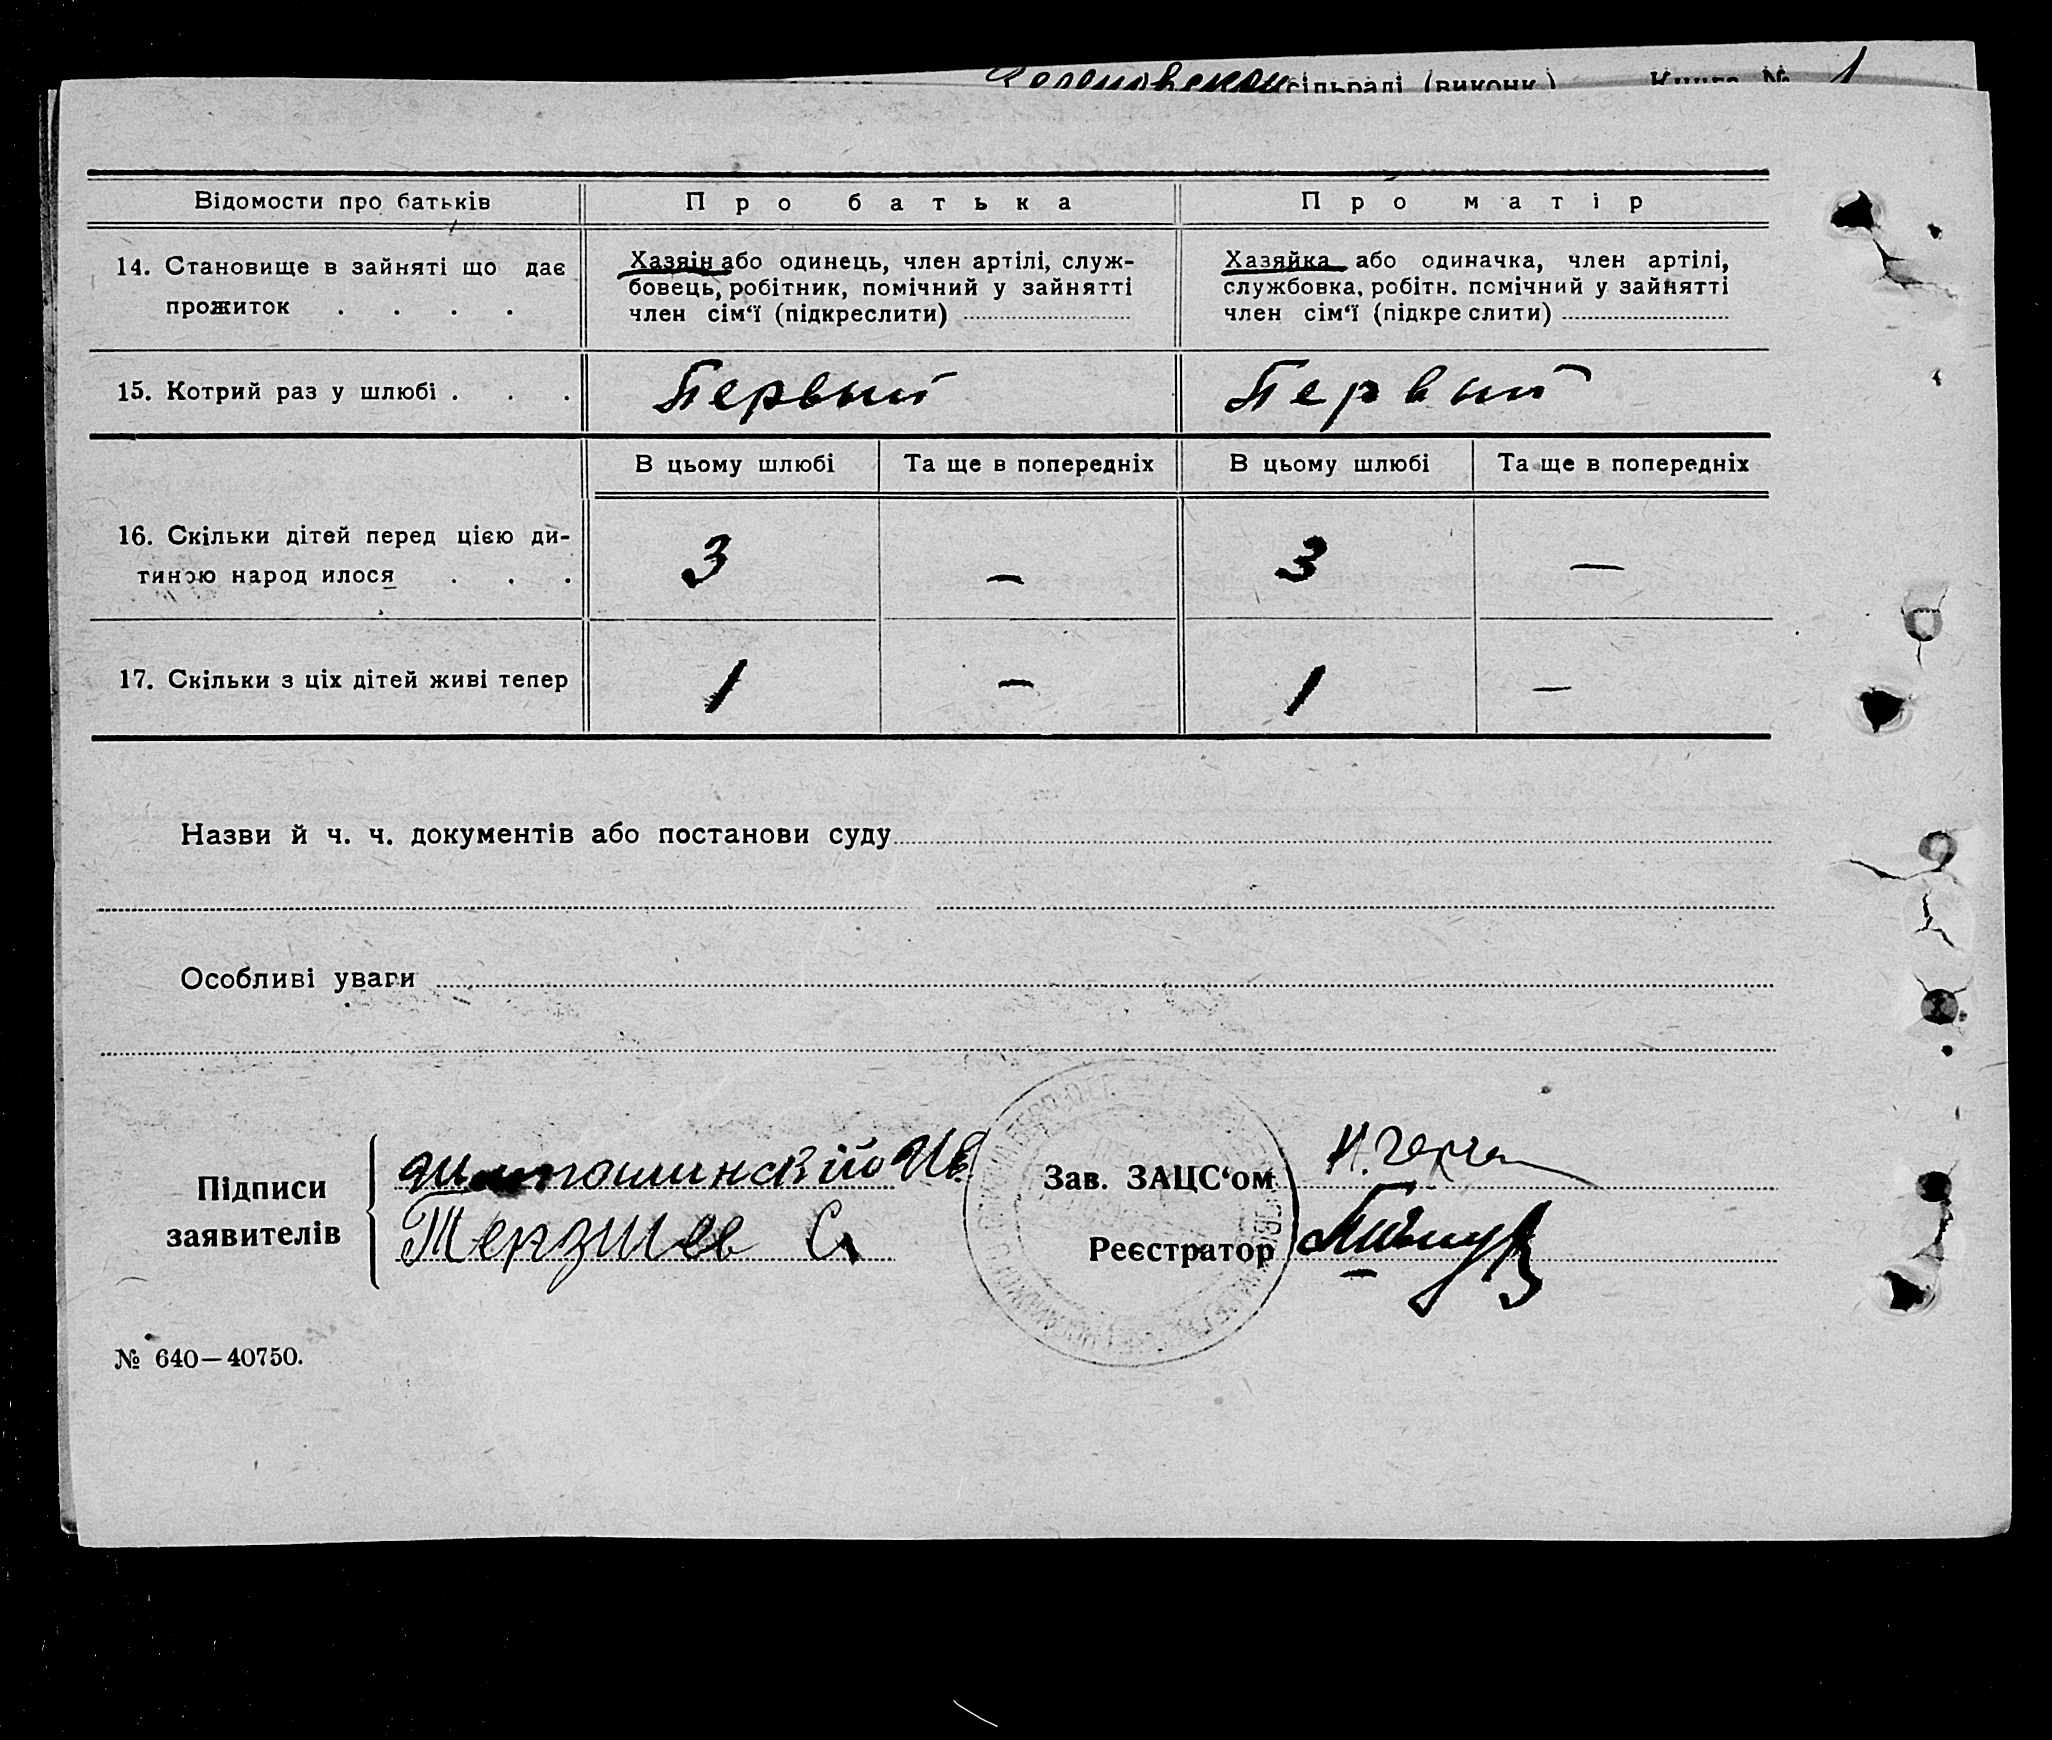 сільраді (виконк.) Книга № 1
Відомости про батьків Про батька Про матір
14. Становище в зайняті що дає прожиток . . . .
Хазяін або одинець, член артілі, служ-
бовець, робітник, помічний у зайнятті
член сім‘ї (підкреслити)
Хазяйка або одиначка, член артілі,
службовка, робітн. помічний у зайнятті
член сім‘ї (підкреслити)
15. Котрий раз у шлюбі . . . Первый Первый
В цьому шлюбі Та ще в попередніх В цьому шлюбі Та ще в попередніх
16. Скільки дітей перед цією ди-
тиною народилося . . . 3 — 3 —
17. Скільки з ціх дітей живі тепер 1 — 1 —
Назви й ч. ч. документів або постанови суду
Особливі уваги
Підписи
заявителів
Терзиев С
Зав. ЗАЦС‘ом
Реєстратор
№ 640—40750.